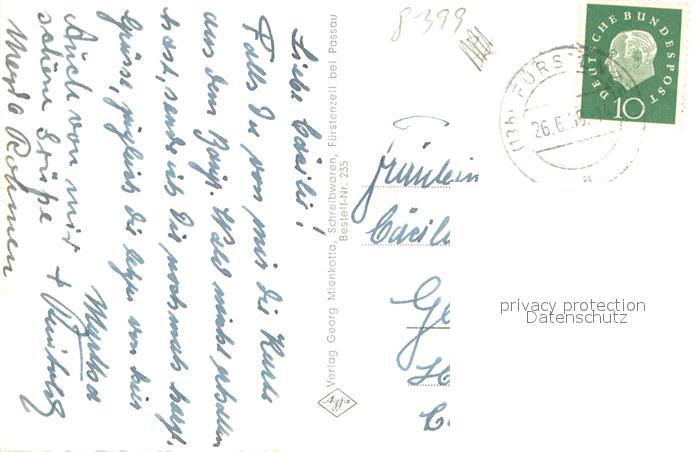 Liebe Cäcilie!
Falls Du von mir die Karte
aus dem Bayr. Wald nicht erhalten
hast, sende ich Dir nochmals herzl.
Grüsse, zugleich die letzten von hier
Myrtha
Auch von mir +
schöne Grüße
Meyda Rohmen
Verlag Georg Mienkotta, Schreibwaren, Fürstenzell bei Passau
Bestell-Nr. 235
Agfa
8-399
DEUTSCHE BUNDESPOST
10
(13b) FÜRSTENZELL
26.6.
a
Fräulein
Cäcil
Ge
privacy protection
Datenschutz